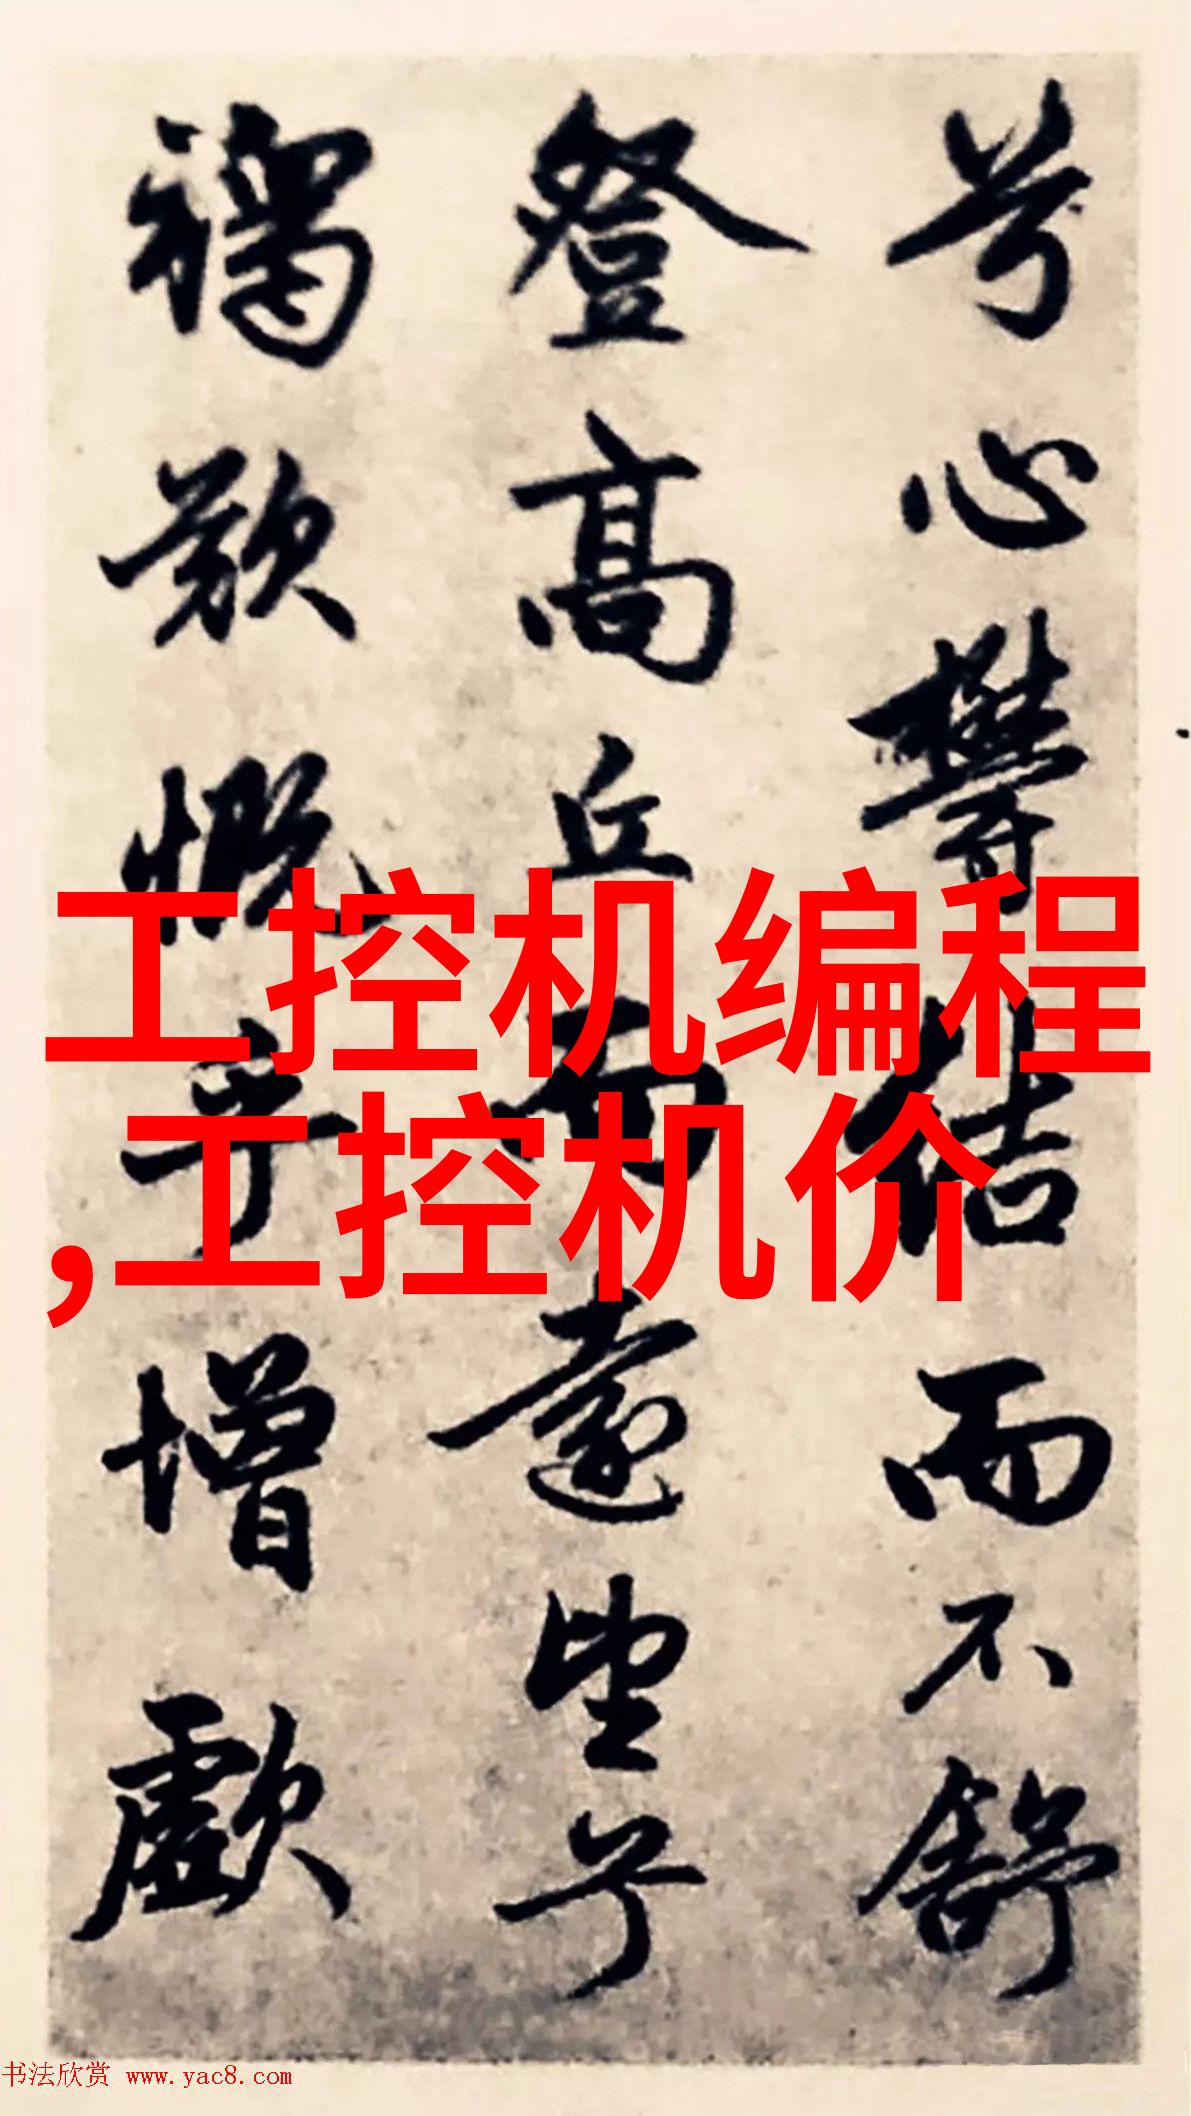 兮心鬱結而不舒
登高丘而遠望兮
歎慨乎增歔
工控机编程
,工控机价
书法欣赏 www.yac8.com